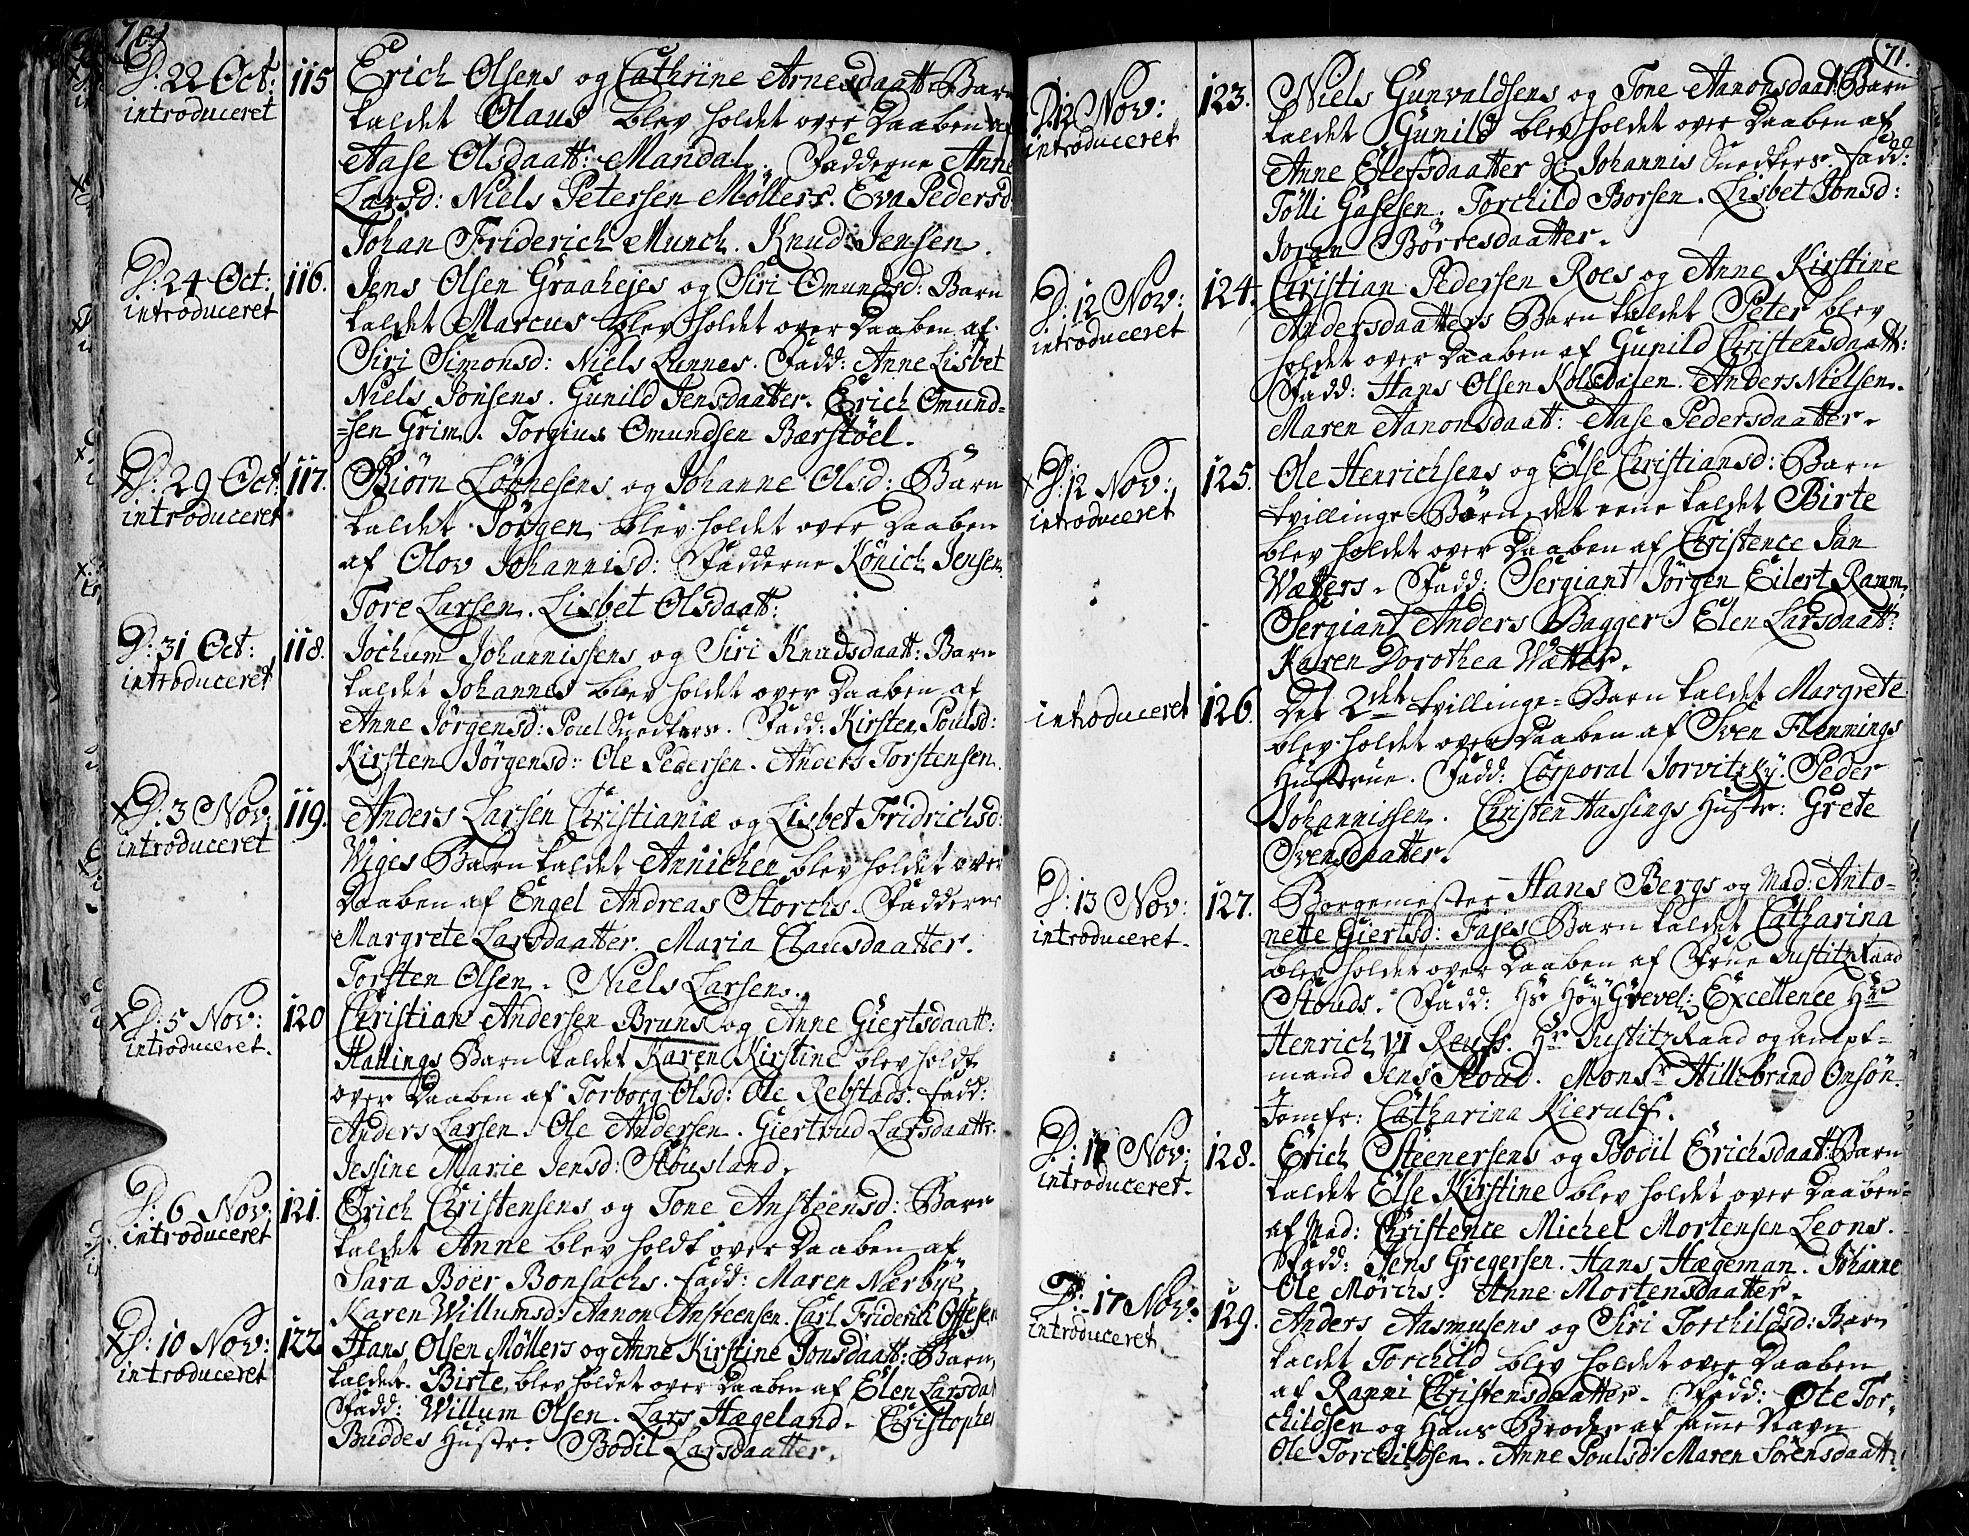 70
D: 22 Oct: 115 Erich Olsens og Cathrine Arnesdaatt: Barn
introduceret kaldet Olaus blev holdet over Daaben af
Aase Olsdaatt: Mandal. Fadderne Anne
Larsd: Niels Petersen Möllers. Eva Pedersd:
Johan Friderich Munch. Knud Jensen.
D: 24 Oct: 116. Jens Olsen Graahejes og Siri Omundsd: Barn
introduceret kaldet Marcus blev holdet over Daaben af
Siri Simonsd: Niels Lunnes. Fadd: Anne Lisbet
Niels Jonsens. Gunild Jensdaatter. Erich Omund=
=sen Grim. Torgius Omundsen Bærstöel.
x D: 29 Oct: 117. Biörn Lönnesens og Johanne Olsd: Barn
introduceret kaldet Jörgen blev holdet over Daaben
af Olov Johannisd: Fadderne Könich Jensen.
Tore Larsen. Lisbet Olsdaatt:
D: 31 Oct: 118. Jochum Johannissens og Siri Knudsdaatt: Barn
introduceret kaldet Johannes blev holdet over Daaben af
Anne Jörgensd: Poul Snedkers. Fadd: Kirsten Poulsd:
Kirsten Jörgensd: Ole Pedersen. Anders Torstensen.
x D: 3 Nov: 119. Anders Larsen Christianiæ og Lisbet Fridrichsd:
introduceret Wiges Barn kaldet Annichen blev holdet over
Daaben af Engel Andreas Storchs. Fadderne
Margrete Larsdaatter. Maria Clausdaatter.
Torsten Olsen. Niels Larsens.
x D: 5 Nov: 120 Christian Andersen Bruns og Anne Giertsdaatt:
introduceret. Hallings Barn kaldet Karen Kirstine blev holdt
over Daaben af Torborg Olsd: Ole Rebstads. Fadd:
Anders Larsen. Ole Andersen. Giertrud Larsdaatt:
Jessine Marie Jensd: Stousland.
D: 6 Nov: 121. Erich Christensens og Tone Ansteensd: Barn
introduceret kaldet Anne blev holdt over Daaben af
Sara Boer Bonsachs. Fadd: Maren Nærbye
Karen Willumsd: Aanon Ansteensen. Carl Friderich Offesen
x D: 10 Nov: 122 Hans Olsen Möllers og Anne Kirstine Jonsdaatt: Barn
introduceret kaldet Birte, blev holdet over Daaben af Elen Larsdat
Fadd: Willum Olsen. Lars Hægeland. Christopher
Buddes Hustr: Bodil Larsdaatter.
71.
D: 12 Nov: 123. Niels Gunvaldsens og Tone Aanonsdaat: Barn
introduceret kaldet Gunild blev holdet over Daaben af
Anne Elefsdaatter Johannis Snedkers. Fadd:
Tölli Gasesen. Torchild Borsen. Lisbet Jonsd:
Joran Börresdaatter.
D: 12 Nov: 124. Christian Pedersen Roes og Anne Kirstine
introduceret Andersdaatters Barn kaldet Peter blev
holdet over Daaben af Gunild Christensdaatt:
Fadd: Hans Olsen Kolsdalen. Anders Nielsen.
Maren Aanonsdaatt: Aase Pedersdaatter.
x D: 12 Nov: 125. Ole Henrichsens og Else Christiansd: Barn
introduceret tvillinge Børn, det eene kaldet Birte
blev holdet over Daaben af Christence Jan
Wætters. Fadd: Sergiant Jörgen Eilert Ramm.
Sergiant Anders Bagger. Elen Larsdaatt:
Karen Dorothea Wætter.
introduceret 126. Det 2det tvillinge=Barn kaldet Margrete
blev holdet over Daaben af Sven Flemmings
Hustrue. Fadd: Corporal Jorvitzky. Peder
Johannissen. Christen Hassings Hustr: Grete
Svensdaatter.
D: 13 Nov: 127. Borgemester Hans Bergs og Mad: Anto=
introduceret. nette Giertsd: Fajes Barn kaldet Catharina
blev holdet over Daaben af Frue JustitzRaad
Stouds. Fadd: Hs Höy Grevel: Excellence Hr
Henrich VI Reuss. Hr JustitzRaad og Ampt=
mand Jens Stoud. Monsr Hillebrand Onsön.
Jomfr: Catharina Kierulf.
D: 17 Nov: 128. Erich Steenersens og Bodil Erichsdaat: Barn
introduceret. kaldet Else Kirstine blev holdet over Daaben
af Mad: Christence Michel Mortensen Leons.
Fadd: Jens Gregersen. Hans Hægeman. Johanne
Ole Mörchs. Anne Mortensdaatter.
D: 17 Nov: 129. Anders Aasmusens og Siri Torchildsd: Barn
introduceret. kaldet Torchild blev holdet over Daaben
af Ranni Christensdaatter. Fadd: Ole Tor=
childsen og Hans Broder af samme Navn
Ole Torchildsen. Anne Poulsd: Maren Sörensdaatt: